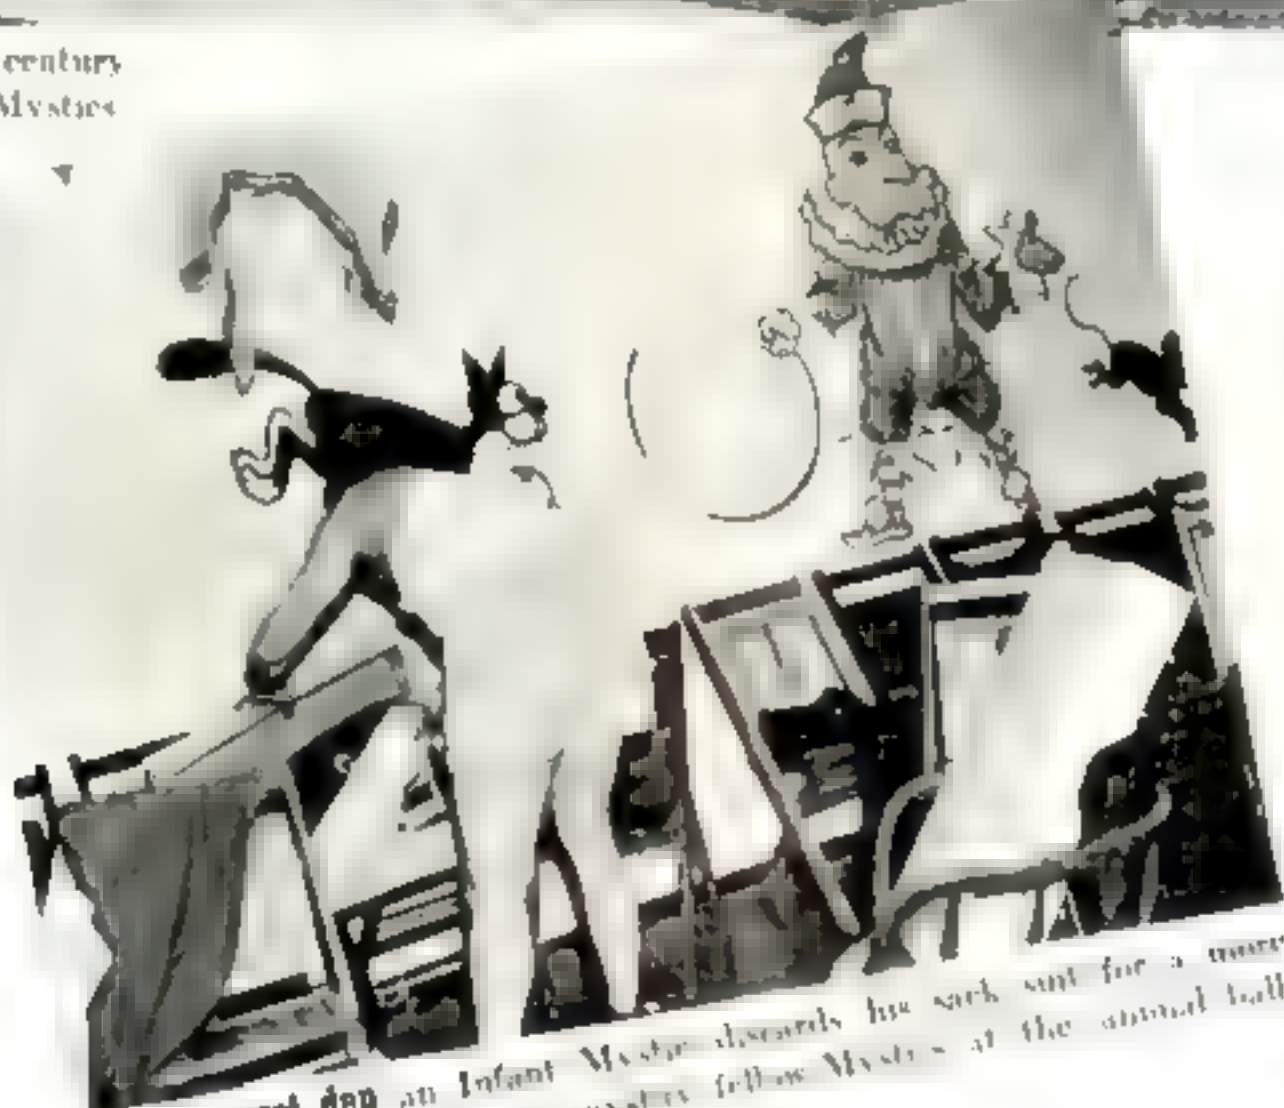 century
Mystics
day an Infant Mystic discards his sack suit for a more
fellow Mystics at the annual ball